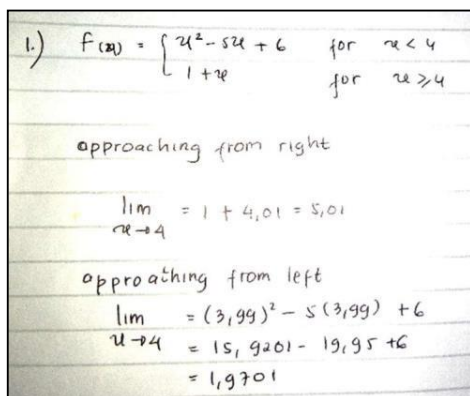 1.) f(x) = { x² - 5x + 6 for x < 4
1 + x for x ≥ 4
approaching from right
lim x→4 = 1 + 4,01 = 5,01
approathing from left
lim x→4 = (3,99)² - 5(3,99) + 6
= 15,9201 - 19,95 + 6
= 1,9701